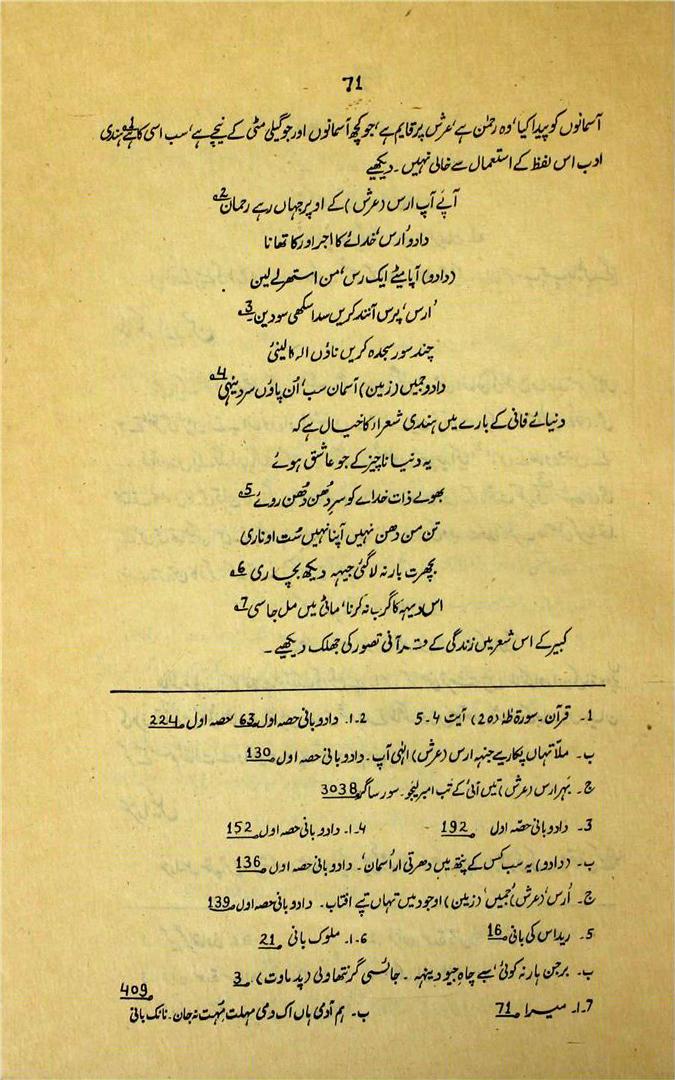 71
آسمانوں کو پیدا کیا‘ وہ رحمٰن ہے‘ عرش پر قایم ہے‘ جو کچھ آسمانوں اور جو گیلی مٹی کے نیچے ہے‘ سب اسی کا ہے1 ہندی
ادب اس لفظ کے استعمال سے خالی نہیں ۔ دیکھیے
آپے آپ ارس (عرش) کے اوپر جہاں رہے رحمان2
دادو اُرس‘ خدائے کا اجر اور کا تھانا
(دادو) آپا میٹے ایک رس‘ من استھر لے لین
‘ارس‘ پرس آنند کریں سدا سکھی سو دین۔3
چند سور سجدہ کریں ناؤں الہ کا لینئ
دادو جمیں (زمین) آسمان سب‘ اُن پاؤں سر دینہی4
دنیائے فانی کے بارے میں ہندی شعراء کا خیال ہے کہ
یہ دنیا ناچیز کے جو عاشق ہوئے
بھولے ذات خدائے کو سر دھُن دھُن روئے5
تن من دھن نہیں آپنا نہیں سُت او ناری
بچھرت بار نہ لاگئی جیہہ دیکھ بچاری 6
اس دیہہ کا گرب نہ کرنا‘ ماٹی میں مل جاسی7
کبیر کے اس شعر میں زندگی کے قرآنی تصور کی جھلک دیکھیے ۔
1۔ قرآن۔ سورۃ طٰہٰ (20) آیت 4۔5 2۔ا۔ دادو بانی حصہ اول 63 حصہ اول 224
ب۔ ملّا تہاں پکاریے جنہہ ارس (عرش) الٰہی آپ۔ دادو بانی حصہ اول 130
ج۔ بہر ارس (عرش) تیں آئی کے تب امبر لیجو۔ سور ساگر 3038
3۔ دادو بانی حصّہ اول 192 4۔ا۔ دادو بانی حصہ اول 152
ب۔ (دادو) یہ سب کس کے پنتھ میں دھرتی ار اُسمان‘۔ دادو بانی حصہ اول 136
ج۔ اُرس‘ (عرش) جمیں‘ (زمین) اوجود میں تہاں تپے افتاب۔ دادو بانی حصہ اول 139
5۔ ریداس کی بانی 16 6۔ا۔ ملوک بانی 21
ب۔ برجن ہار نہ کوئی‘ سبے چاہِ جیو دینہہ ۔ جائسی گرنتھاولی (پدماوت)۔ 3
7۔ا۔ میرا 71 ب۔ ہم آدمی ہاں اک دمی مہلت مُہت نہ جان۔ نانک بانی 409